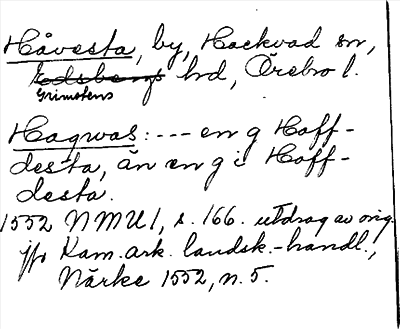 Håvesta, by, Hackvad sn,
Edsbergs hd, Örebro l.
Grimstens
Hagwas: --- en g Hoff-
desta, än en g i Hoff-
desta.
1552 NMU 1, s. 166. utdrag av orig.
jfr Kam. ark. landsk.-handl.,
Närke 1552, n. 5.